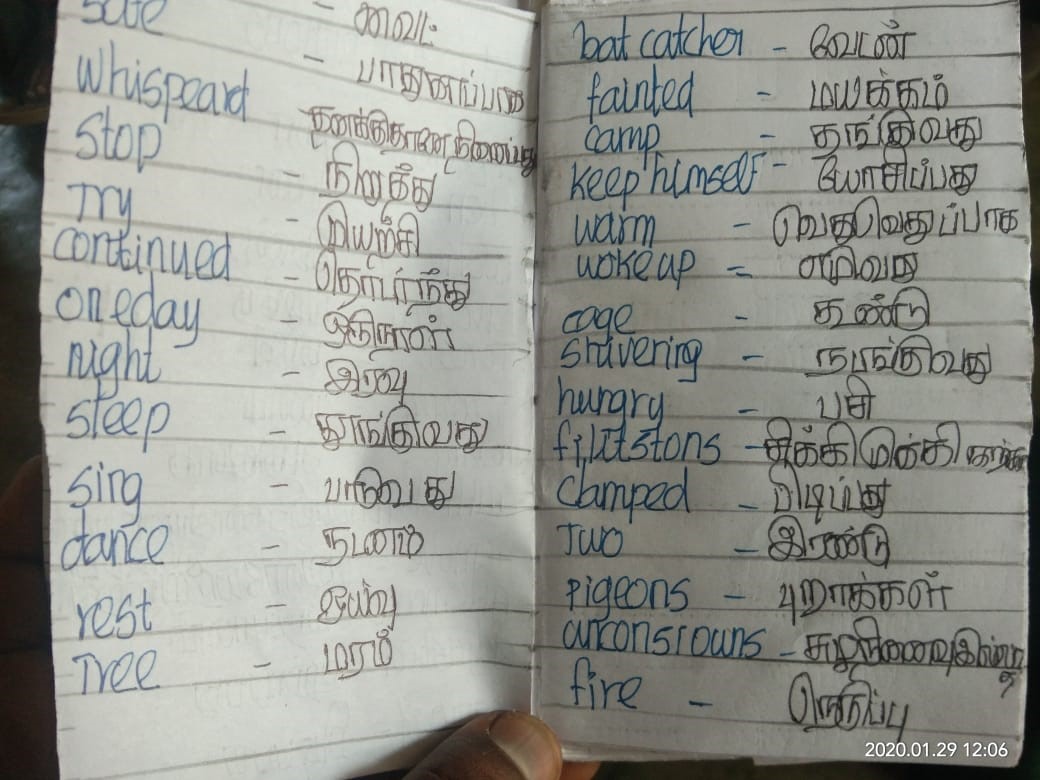 safe -
whispeard - பாதுகாப்பாக
stop
- நிறுத்து
Try - முயற்சி
continued - தொடர்ந்து
oneday - ஒருநாள்
night - இரவு
sleep - தூங்குவது
sing - பாடுவது
dance - நடனம்
rest - ஓய்வு
Tree - மரம்
bat catcher - வேடன்
fainted - மயக்கம்
camp - தங்குவது
keep himself - யோசிப்பது
warm - வெதுவெதுப்பாக
woke up - எழுவது
cage - கூண்டு
shivering - நடுங்குவது
hungry - பசி
சிக்கி முக்கி
clamped - பிடிப்பது
Two - இரண்டு
pigeons - புறாக்கள்
fire - நெருப்பு
2020.01.29 12:06